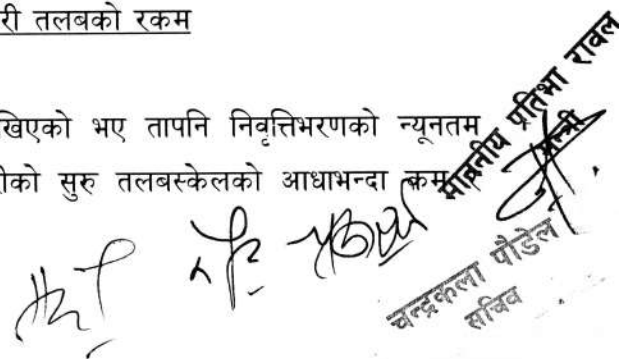 री तलबको रकम
खिएको भए तापनि निवृत्तिभरणको न्यूनतम
ीको सुरु तलबस्केलको आधाभन्दा कम
माननीय प्रतिभा रावल
मन्त्री
चन्द्रकला पौडेल
सचिव